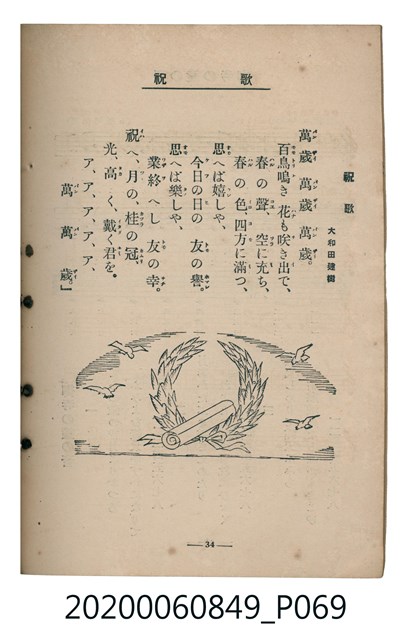 祝歌
祝歌
大和田健樹
萬歲 萬歲 萬歲。
百鳥鳴き 花も咲き出で、
春の聲、空に充ち、
春の色、四方に滿つ、
思へば嬉しや、
今日の日の 友の譽。
思へば樂しや、
業終へし 友の幸。
祝へ、月の桂の冠、
光、高く、戴く君を。
ア、ア、ア、ア、ア、
萬 萬 歲。』
— 34 —
20200060849_P069